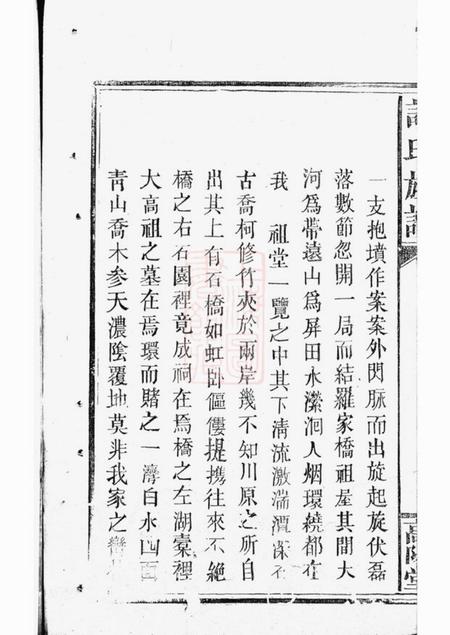 氏族譜
一支抱墳作案案外閃脈而出旋起旋伏磊
落數節忽開一局而結羅家橋祖屋其間大
河為帶遠山為屏田水瀠洄人烟環繞都在
我　祖堂一覽之中其下清流激湍潭深
古喬柯修竹夾於兩岸幾不知川原之所自
出其上有石橋如虹卧傴僂提携往來不絶
橋之右石園裡竟成祠在焉橋之左湖橐裡
大高祖之墓在焉環而賭之一灣白水四面
靑山喬木參天濃陰覆地莫非我家之
高陽堂